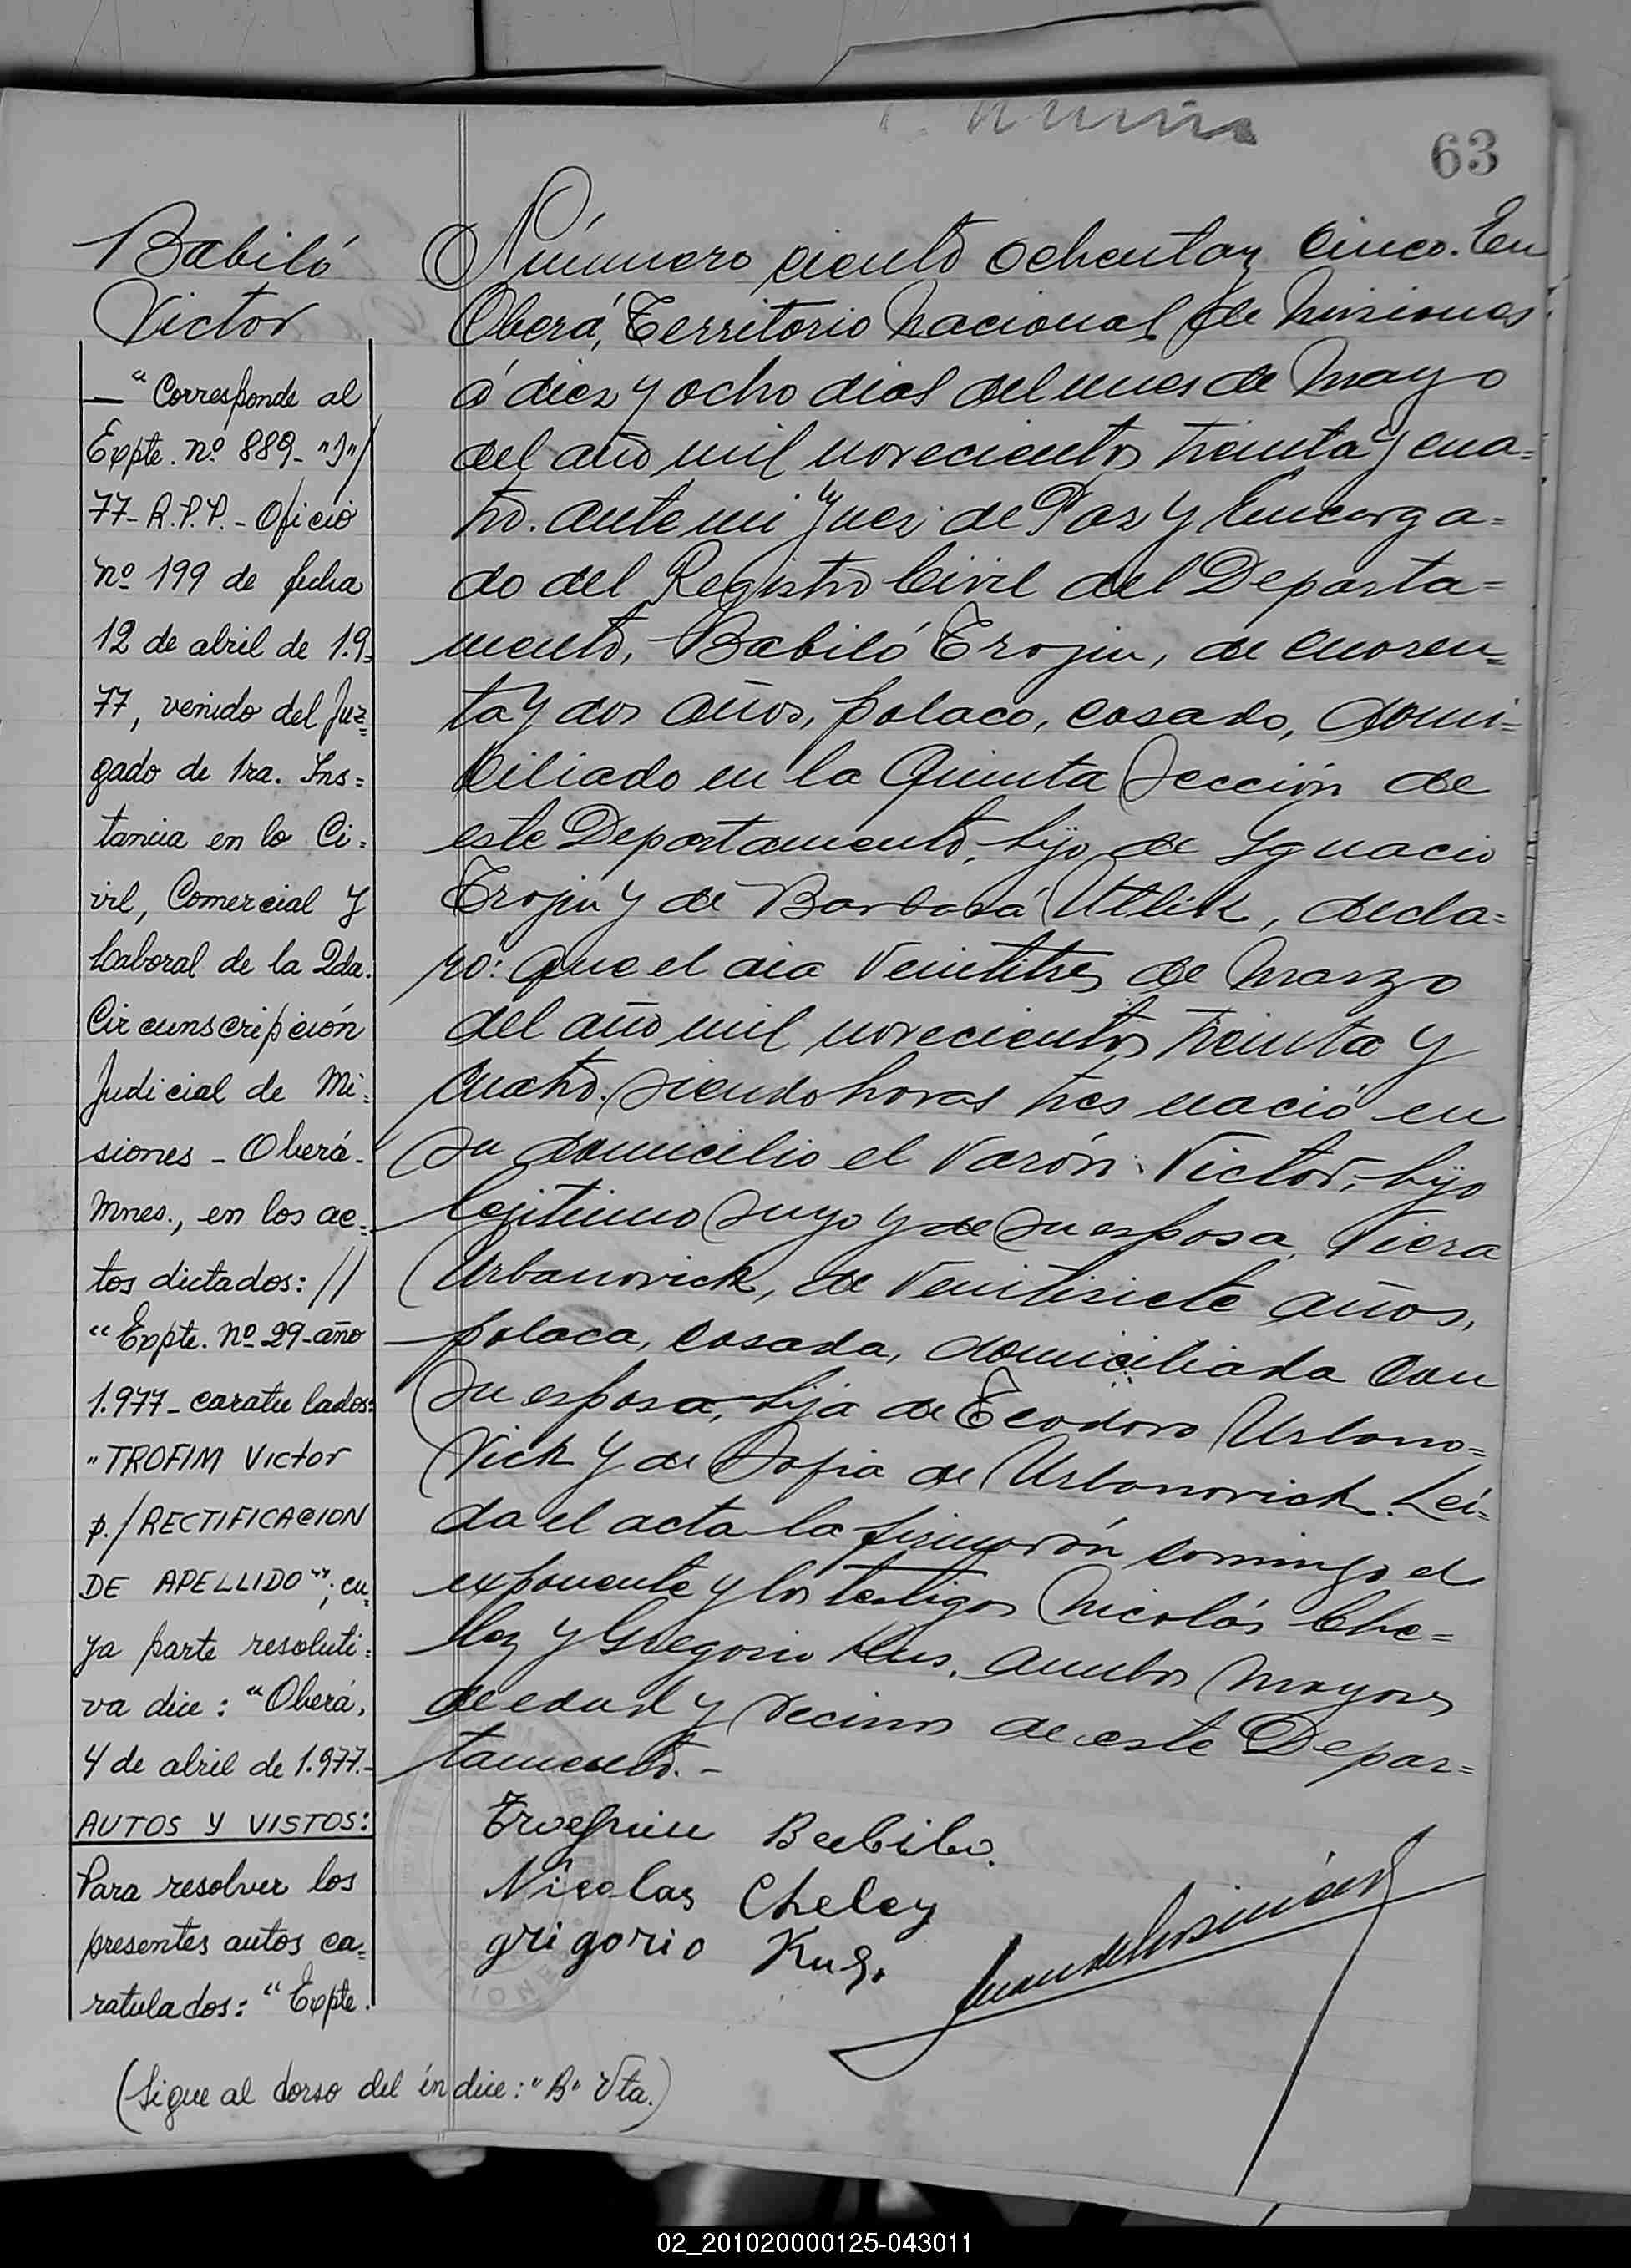 63
Babiló
Victor
— "Corresponde al
Expte. nº 889- "J"/
77- R.P.P. - Oficio
nº 199 de fecha
12 de abril de 1.9=
77, venido del Juz=
gado de 1ra. Ins=
tancia en lo Ci=
vil, Comercial y
Laboral de la 2da.
Circunscripción
Judicial de Mi=
siones - Oberá -
Mnes., en los ac=
tos dictados: //
"Expte. Nº 29-año
1.977- caratulados:
"TROFIM Victor
p./RECTIFICACION
DE APELLIDO""; cu
ya parte resoluti=
va dice: "Oberá,
4 de abril de 1.977.-
AUTOS Y VISTOS:
Para resolver los
presentes autos ca=
ratulados: "Expte.
(Sigue al dorso del índice: "B" Vta.)
Número ciento ochenta y cinco. En
Oberá, Territorio Nacional de Misiones
á diez y ocho dias del mes de Mayo
del año mil novecientos treinta y cua=
tro. ante mi Juez de Paz y Encarga=
do del Registro Civil del Departa=
mento, Babiló Trojin, de cuaren=
ta y dos años, polaco, casado, domi=
ciliado en la Quinta Sección de
este Departamento, hijo de Ygnacio
Trojin y de Barbará Utlik, decla=
ró: que el dia veintitres de Marzo
del año mil novecientos treinta y
cuatro. siendo horas tres nació en
su domicilio el varón: Victor, hijo
legitimo suyo y de su esposa Viera
Urbanovick, de veintisiete años,
polaca, casada, domiciliada con
su esposa, hija de Teodoro Urbano=
vick y de Sofia de Urbanovick. Leí=
da el acta la firmarón conmigo el
exponente y los testigos Nicolás Che=
ley y Gregorio Kus, ambos mayores
de edad y vecinos de este Depar=
tamento.-
Troefhim Babilo.
Nicolas Cheley
grigorio Kus.
02_201020000125-043011